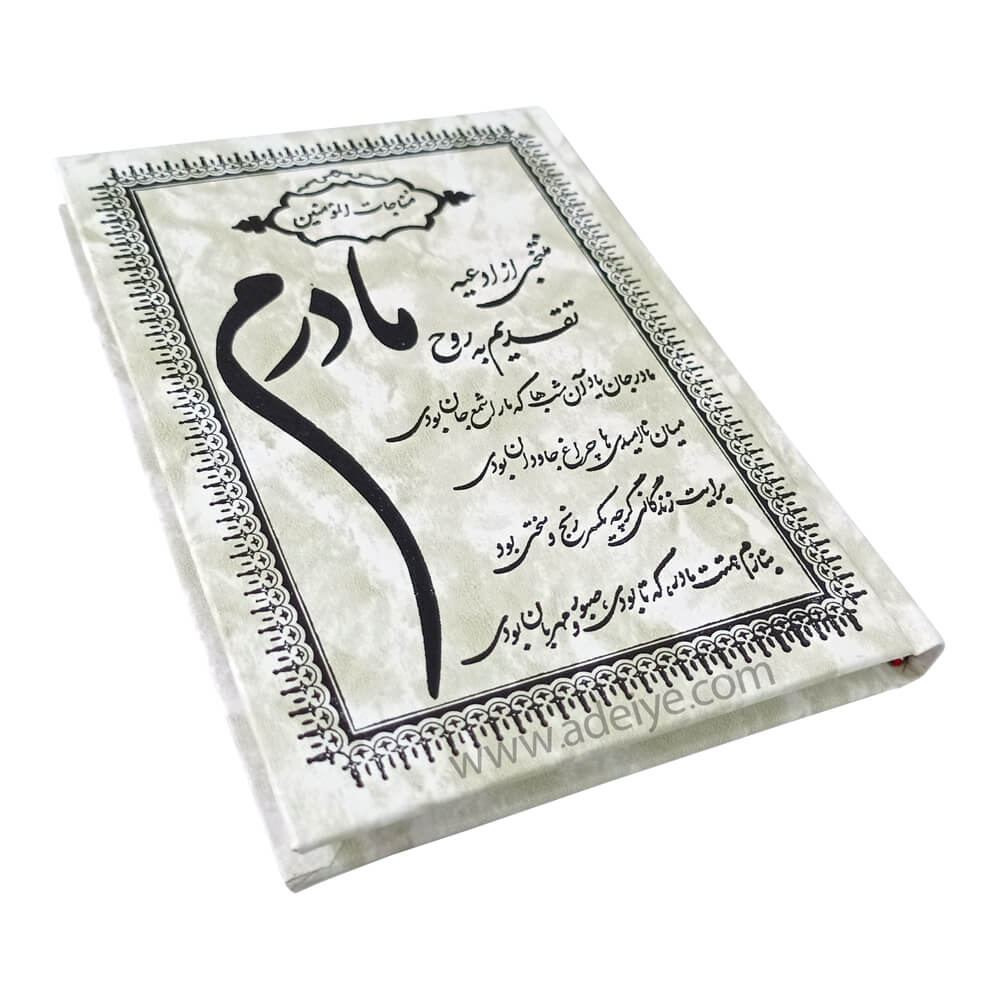 مناجات المؤمنین
منتخبی از ادعیه
تقدیم به روح
مادرم
مادر جان یاد آن شب‌ها که ما را شمع جان بودی
میان ناامیدی‌ها چراغ جاودان بودی
برایت زندگانی گرچه یکسر رنج و سختی بود
بنازم همتت مادر، که تا بودی، صبور و مهربان بودی
www.adeiye.com